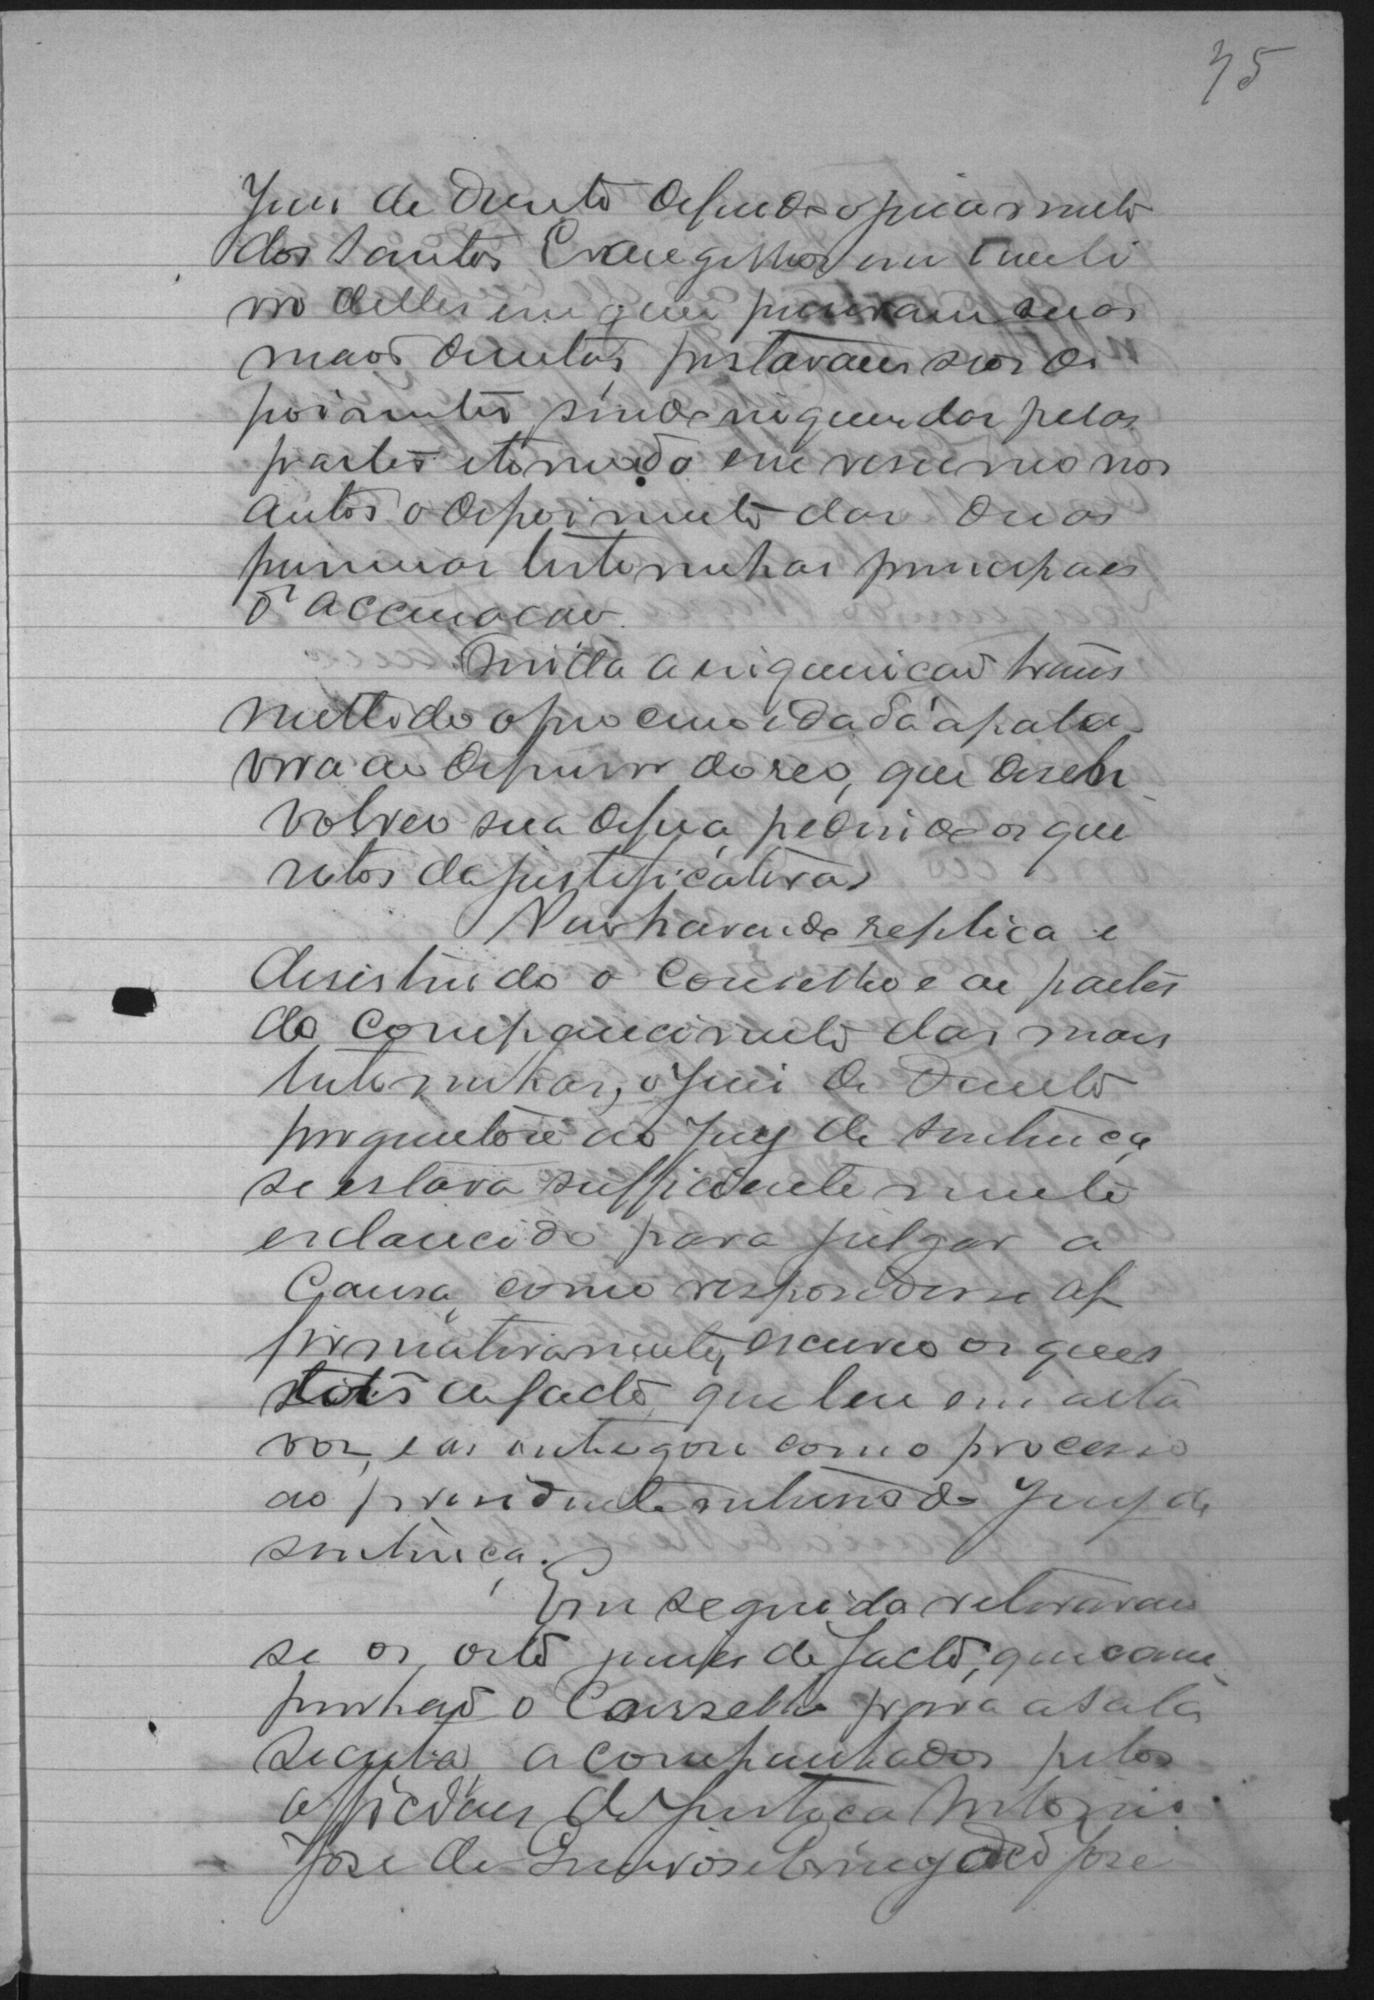 35
Juis de Direito deferido o juramento
dos Santos Evangelhos em um li
vro delles em que puzeram suas
mãos direitas, prestaram seos de
poimentos sendo requeridos pelas
partes e tomado em resumo nos
autos o depoimento das duas
primeiras testemunhas principaes
d'accusacão.
Finda a inquirição trans
mettido o processo e dada a pala
vra ao defensor do reo, que desen
volveo sua defesa, pedindo os que
sitos da justificativa
Não havendo replica e
desistindo o Conselho e as partes
do comparecimento das mais
testemunhas, o Juiz de Direito
perguntou ao Jury de sentença
se estava sufficientemente
esclarecido para julgar a
Causa, como respondesse af
firmativamente, escreveo os ques
sitos de facto, que leu em alta
voz, e as entregou com o processo
ao presidente interino do Jury de
sentença.
Em seguida retiraram
se os oito juizes de facto, que com
punhão o Conselho para a sala
secreta, acompanhados pelos
officiaes de Justiça Antonio
José de e José